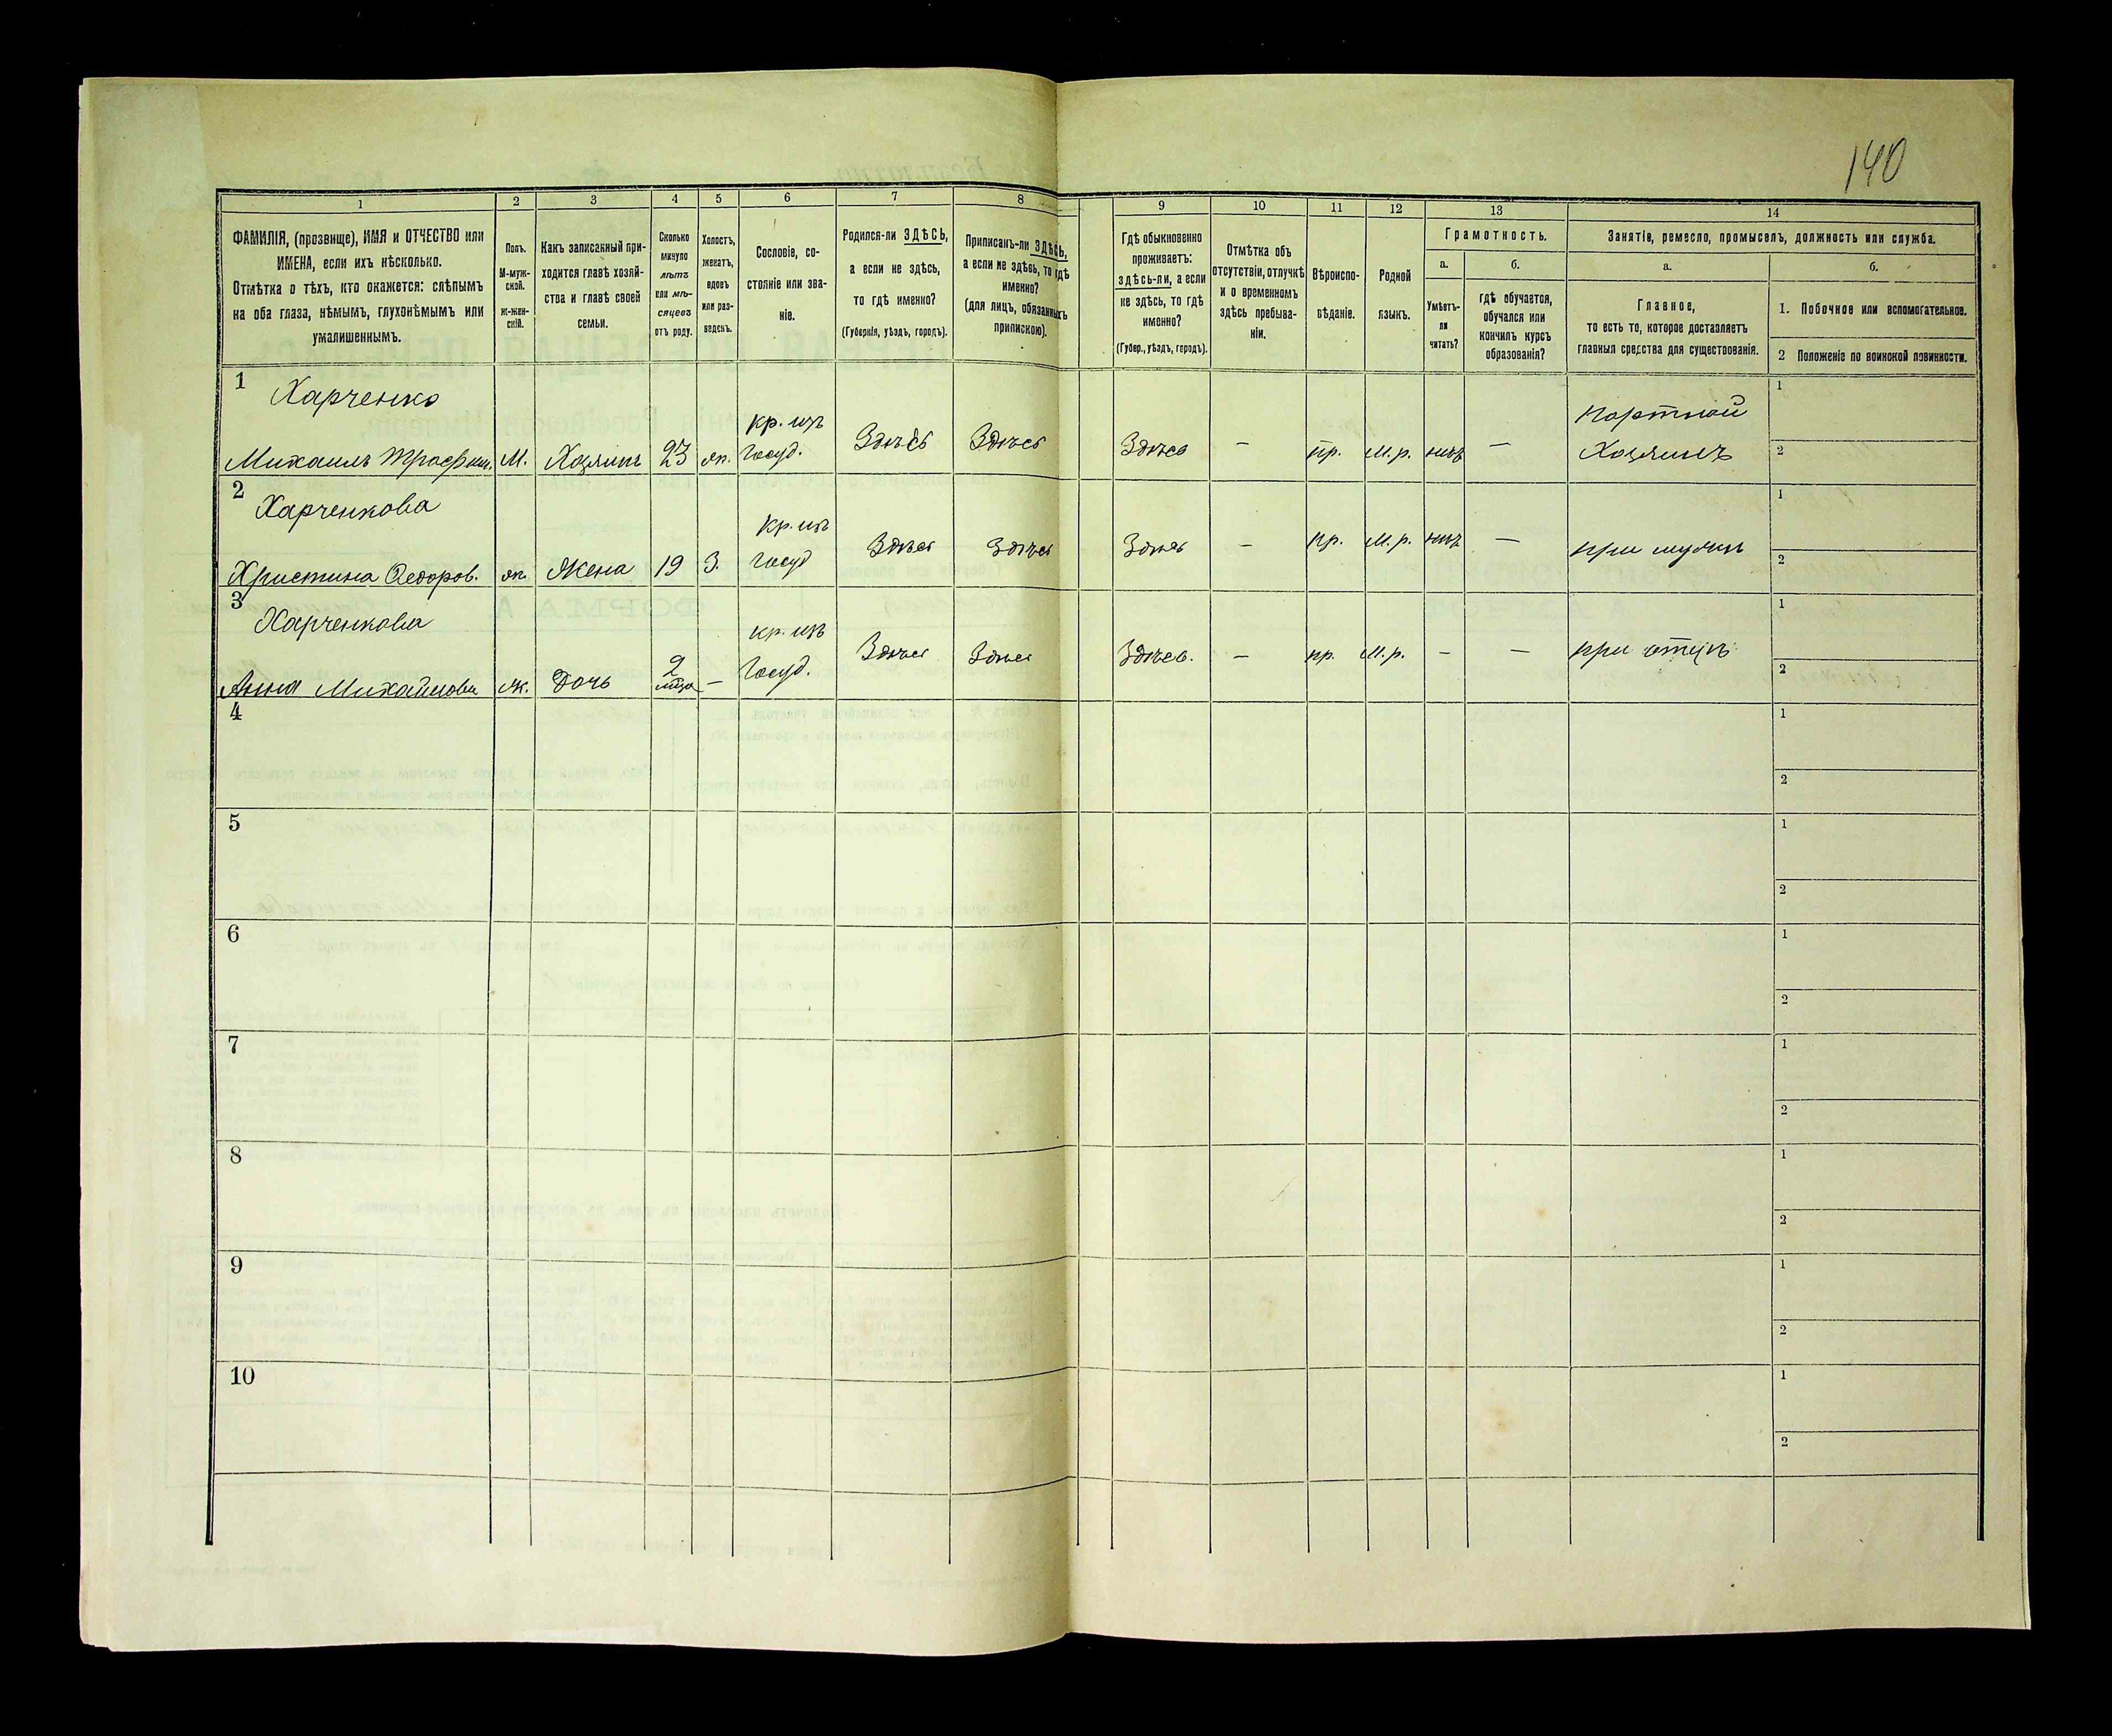 140
1 2 3 4 5 6 7 8 9 10 11 12 13 14
ФАМИЛІЯ, (прозвище), ИМЯ и ОТЧЕСТВО или
ИМЕНА, если ихъ нѣсколько.
Отмѣтка о тѣхъ, кто окажется: слѣпымъ
на оба глаза, нѣмымъ, глухонѣмымъ или
умалишеннымъ.
Полъ.
М-муж-
ской.
Ж-жен-
скій.
Какъ записанный при-
ходится главѣ хозяй-
ства и главѣ своей
семьи.
Сколько
минуло
лѣтъ
или мѣ-
сяцевъ
отъ роду.
Холостъ,
женатъ,
вдовъ
или раз-
веденъ.
Сословіе, со-
стояніе или зва-
ніе.
Родился-ли ЗДѢСЬ,
а если не здѣсь,
то гдѣ именно?
(Губернія, уѣздъ, городъ).
Приписанъ-ли ЗДѢСЬ,
а если не здѣсь, то гдѣ
именно?
(для лицъ, обязанныхъ
припискою).
Гдѣ обыкновенно
проживаетъ:
здѣсь-ли, а если
не здѣсь, то гдѣ
именно?
(Губер., уѣздъ, городъ).
Отмѣтка объ
отсутствіи, отлучкѣ
и о временномъ
здѣсь пребыва-
ніи.
Вѣроиспо-
вѣданіе.
Родной
языкъ.
Грамотность.
а.
Умѣетъ-
ли
читать?
б.
гдѣ обучается,
обучался или
кончилъ курсъ
образованія?
Занятіе, ремесло, промыселъ, должность или служба.
а.
Главное,
то есть то, которое доставляетъ
главныя средства для существованія.
б.
1. Побочное или вспомогательное.
2 Положеніе по воинской повинности.
1 Харченко
Михаилъ Трофим. М. Хозяинъ 23 ж. кр. изъ Госуд. Здѣсь Здѣсь Здѣсь — пр. М.р. нѣтъ — портной Хозяинъ 1 2
2 Харченкова
Христина Федоров. ж. Жена 19 З. кр. изъ Госуд Здѣсь Здѣсь Здѣсь — пр. М.р. нѣтъ — при мужѣ 1 2
3 Харченкова
Анна Михайлова ж. Дочь 2 мѣс. — кр. изъ Госуд. Здѣсь Здѣсь Здѣсь. — пр. М.р. — — при отцѣ 1 2
4 1 2
5 1 2
6 1 2
7 1 2
8 1 2
9 1 2
10 1 2